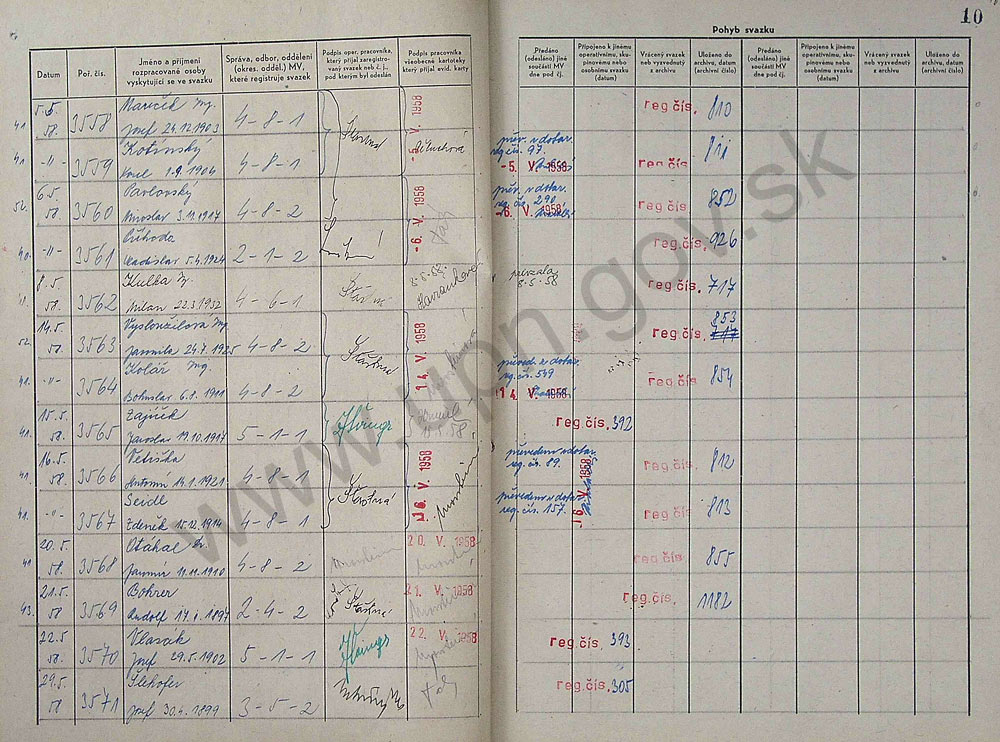 10
Pohyb svazku
Datum
Poř. čís.
Jméno a příjmení
rozpracované osoby
vyskytující se ve svazku
Správa, odbor, oddělení
(okres. odděl.) MV,
které registruje svazek
Podpis oper. pracovníka,
který přijal zaregistro-
vaný svazek neb č. j.,
pod kterým byl odeslán
Podpis pracovníka
všeobecné kartoteky
který přijal evid. karty
Předáno
(odesláno) jiné
součástí MV
dne pod čj.
Připojeno k jinému
operativnímu, sku-
pinovému nebo
osobnímu svazku
(datum)
Vrácený svazek
neb vyzvednutý
z archivu
Uloženo do
archivu, datum
(archivní číslo)
Předáno
(odesláno) jiné
součástí MV
dne pod čj.
Připojeno k jinému
operativnímu, sku-
pinovému nebo
osobnímu svazku
(datum)
Vrácený svazek
neb vyzvednutý
z archivu
Uloženo do
archivu, datum
(archivní číslo)
41. 5.5. 58. 3558 Mareček Ing.
Josef 24.12.1903 4-8-1 -5. V. 1958 reg. čís. 810
41. -"- 3559 Kotínský
1.9.1904 4-8-1 přev. z dotar.
reg. čís. 97.
-5. V. 1958 reg. čís. 811
52. 6.5. 58. 3560 Pavlovský
Miroslav 3.11.1917 4-8-2 -6. V. 1958 přev. z dotar.
reg. čís. 290
-6. V. 1958 reg. čís. 852
40. -"- 3561 Příhoda
Vladislav 5.4.1924 2-1-2 reg. čís. 926
8.5. 58. 3562 Kulka
Milan 22.3.1932 4-6-1 8.5.58 převzala
8.5.58 reg. čís. 717
52. 14.5. 58. 3563 Vysloužilová Ing.
Jarmila 24.7.1925 4-8-2 Šťastná 14. V. 1958 reg. čís. 853
41. -"- 3564 Kolář Ing.
Bohuslav 6.1.1911 4-8-2 převed. z dotar.
reg. čís. 549
14. V. 1958 reg. čís. 854
41. 15.5. 58. 3565 Zajíček
Jaroslav 19.10.1917 5-1-1 reg. čís. 392
41. 16.5. 58. 3566 Vetiška
Antonín 14.1.1921 4-8-1 Šťastná 16. V. 1958 převedeno z dotar.
reg. čís. 89. 16. V. 1958 reg. čís. 812
41. -"- 3567 Seidl
Zdeněk 15.12.1914 4-8-1 převedeno z dotar.
reg. čís. 157. reg. čís. 813
41. 20.5. 58. 3568 Otáhal Dr.
Jaromír 11.11.1910 4-8-2 20. V. 1958 reg. čís. 855
43. 21.5. 58 3569 Bohrer
Rudolf 17.1.1897 2-4-2 Šťastná 21. V. 1958 reg. čís. 1182
22.5 58. 3570 Vlasák
Josef 29.5.1902 5-1-1 22. V. 1958 reg. čís. 393
29.5. 58 3571 Šlehofer
Josef 30.4.1899 3-5-2 reg. čís. 305
www.upn.gov.sk